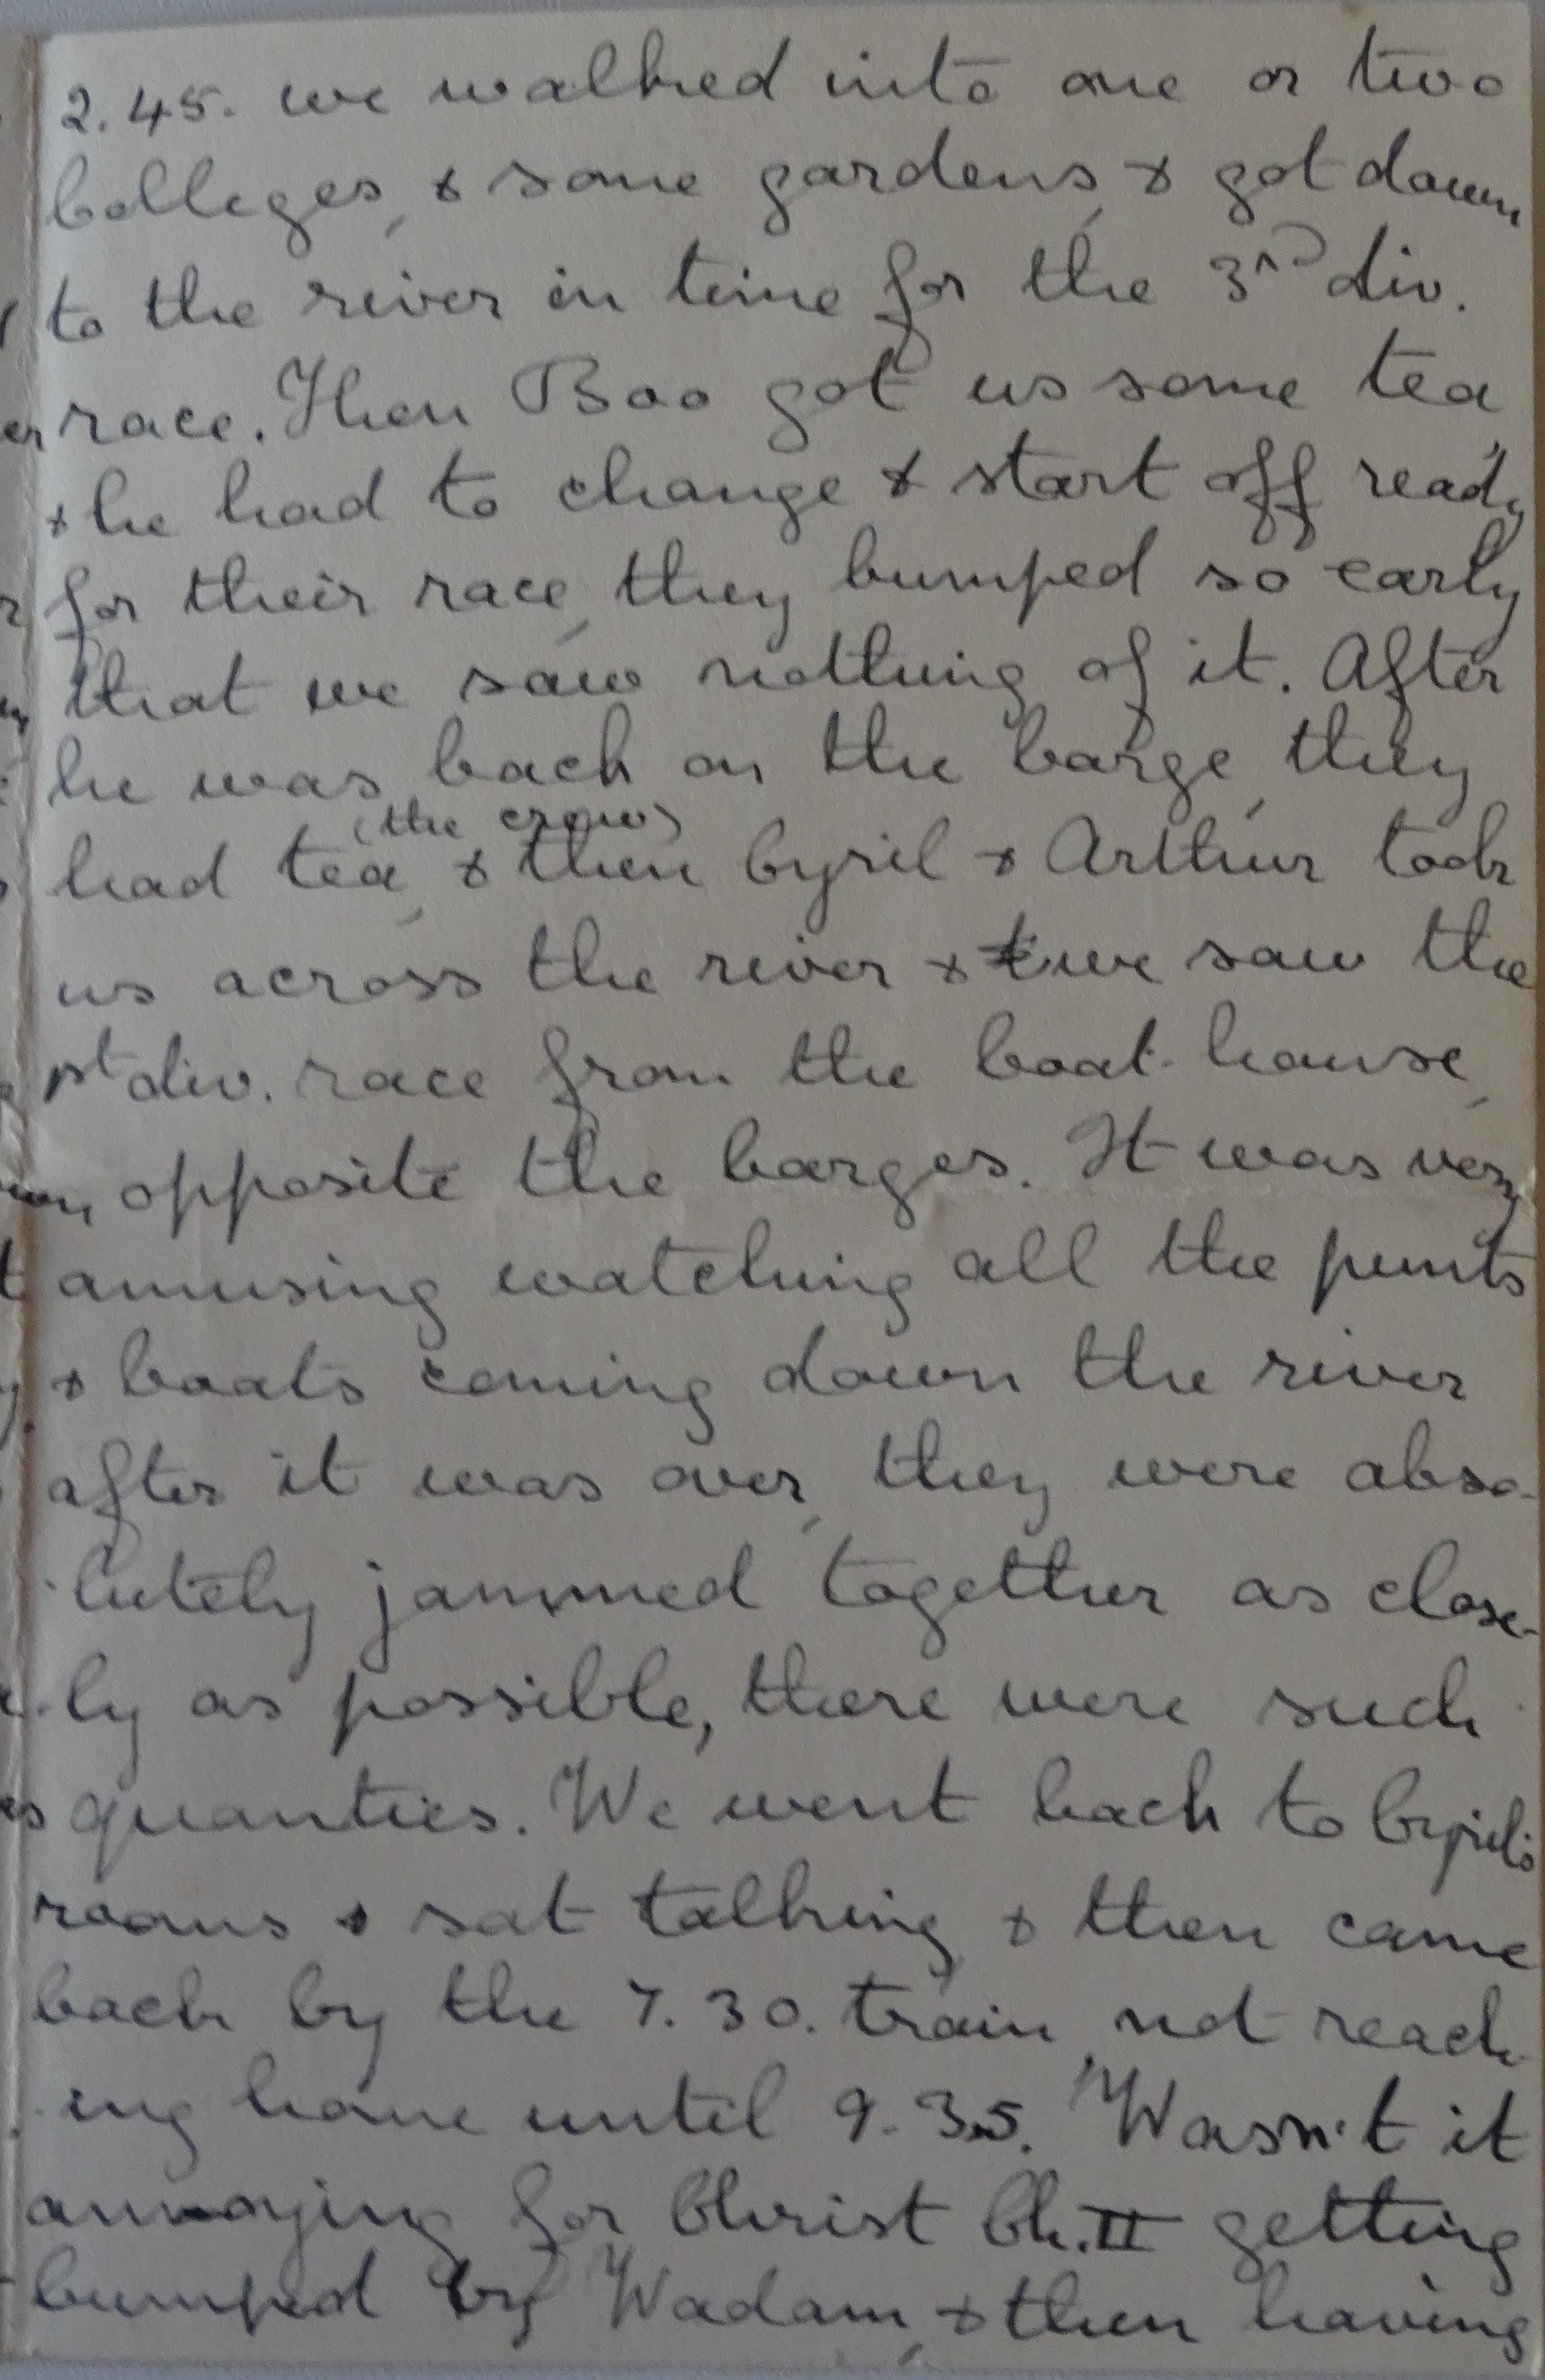 2.45. we walked into one or two
Colleges, & some gardens, & got down
to the river in time for the 3rd div.
race. Then Boo got us some tea
& he had to change & start off ready
for their race, they bumped so early
that we saw nothing of it. After
he was back on the barge, they
(the crew)
had tea, & then Cyril & Arthur took
us across the river & t we saw the
1st div. race from the boat-house,
opposite the barges. It was very
amusing watching all the punts
& boats coming down the river
after it was over, they were abso-
-lutely jammed together as close-
-ly as possible, there were such
quanties. We went back to Cyril's
rooms & sat talking, & then came
back by the 7.30. train, not reach-
-ing home until 9.35. Wasn't it
annoying for Christ Ch. II getting
bumped by Wadam, & then having